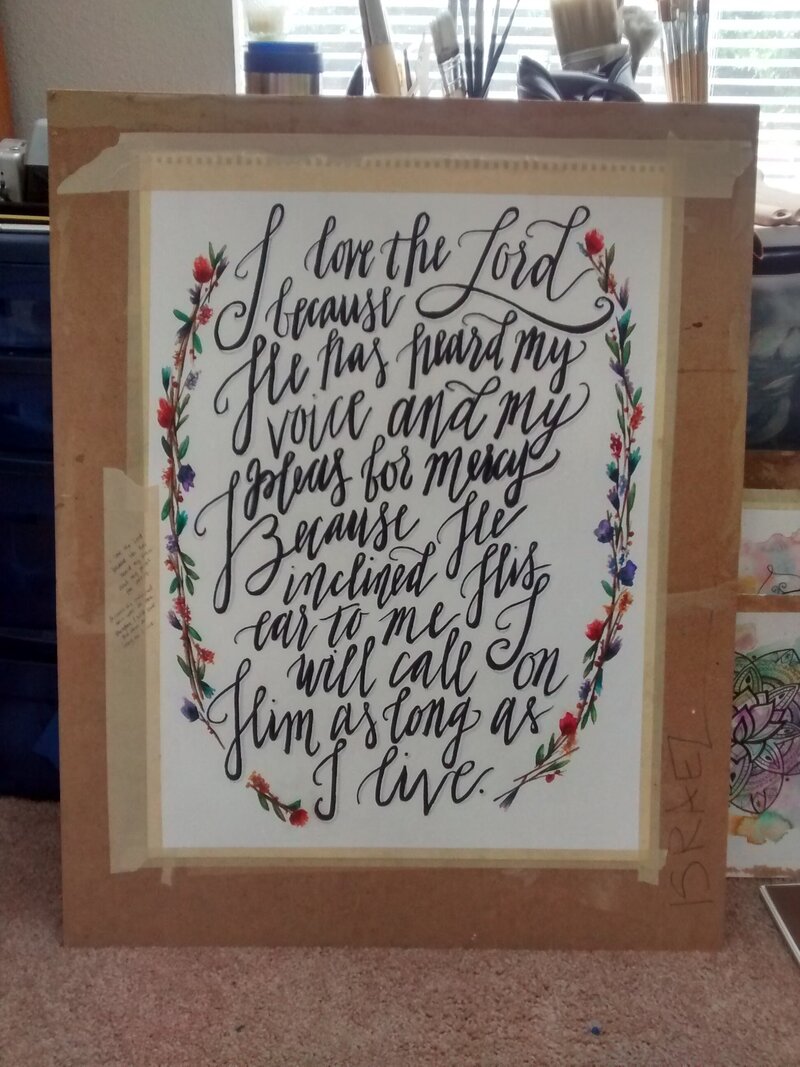 I love the Lord
because
He has heard my
voice and my
pleas for mercy
Because He
inclined His
ear to me I
will call on
Him as long as
I live.